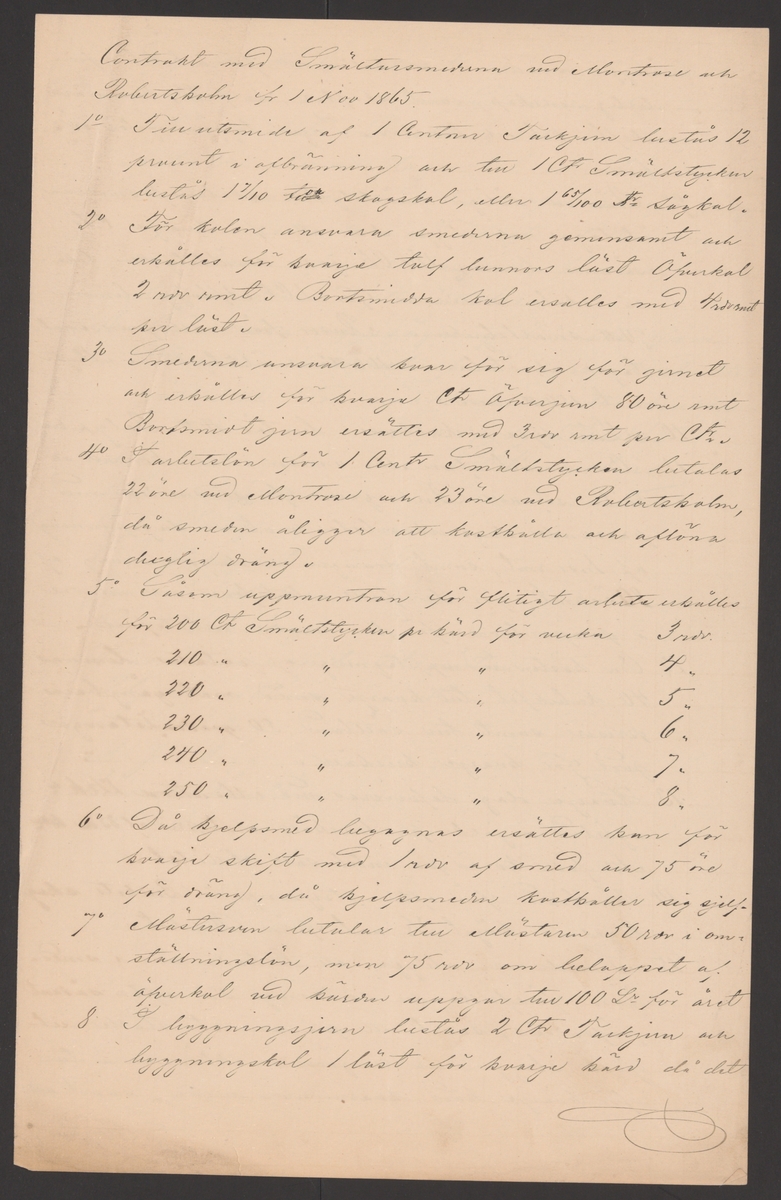 Contrakt med Smältarsmederna vid Montrose och
Robertsholm fr 1 Nov 1865.
1o Till utsmide af 1 Centner Tackjern bestås 12
procent i afbränning och till 1 Ctr Smältstycken
bestås 1 7/10 skogskol, eller 1 65/100 Sågkol.
2o För kolen ansvara smederna gemensamt och
erhålles för hvarje tolf tunnors läst Öfverkol
2 rdr rmt. Bortsmidda kol ersättes med 4 rdr rmt
per läst.
3o Smederna ansvara hvar för sig för jernet
och erhålles för hvarje Ctr Öfverjern 80 öre rmt
Bortsmidt jern ersättes med 3 rdr rmt per Ctr.
4o I arbetslön för 1 Centr Smältstycken betalas
22 öre vid Montrose och 23 öre vid Robertsholm,
då smeden åligger att kosthålla och aflöna
duglig dräng.
5o Såsom uppmuntran för flitigt arbete erhålles
för 200 Ctr Smältstycken pr härd för vecka 3 rdr.
210 " " " 4 "
220 " " " 5 "
230 " " " 6 "
240 " " " 7 "
250 " " " 8 "
6o Då hjelpsmed begagnas ersättes han för
hvarje skift med 1 rdr af smed och 75 öre
för dräng, då hjelpsmeden kosthåller sig sjelf.
7o Mästersven betalar till Mästaren 50 rdr i om-
ställningslön, men 75 rdr om beloppet af
öfverkol vid härden uppgår till 100 Lr för året
8 I byggningsjern bestås 2 Ctr Tackjern och
byggningskol 1 läst för hvarje härd då det